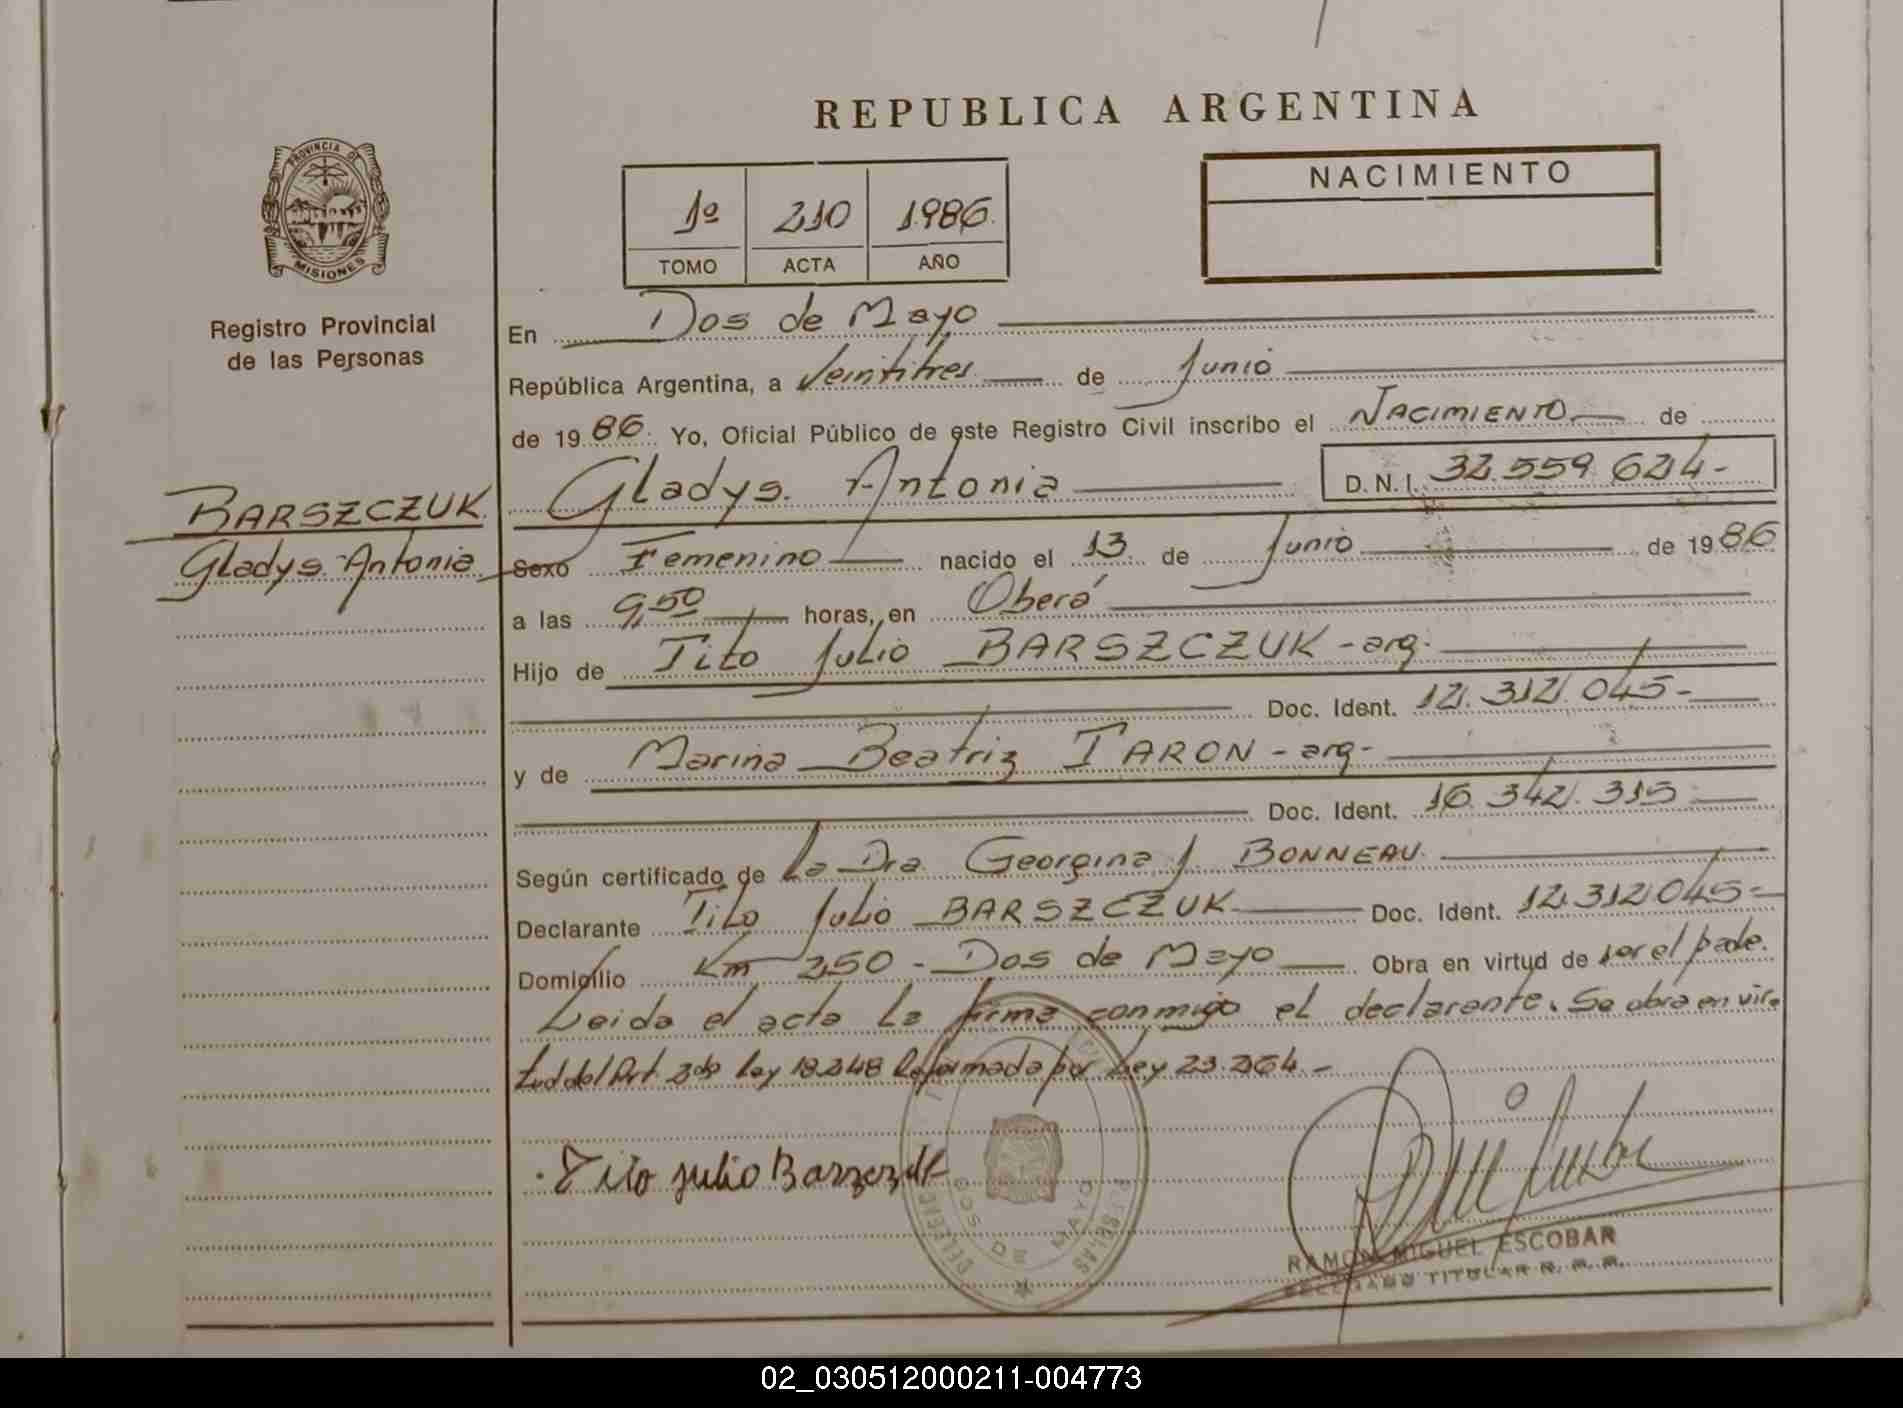 REPUBLICA ARGENTINA
PROVINCIA DE
MISIONES
Registro Provincial
de las Personas
1º 210 1986
TOMO ACTA AÑO
NACIMIENTO
En Dos de Mayo
República Argentina, a Veintitres de Junio
de 1986. Yo, Oficial Público de este Registro Civil inscribo el NACIMIENTO de
Gladys Antonia D.N.I. 32.559.624-
BARSZCZUK
Gladys Antonia
Sexo Femenino nacido el 13 de Junio de 1986
a las 9,50 horas, en Oberá
Hijo de Tito Julio BARSZCZUK - arg.
Doc. Ident. 12.312.045-
y de Marina Beatriz TARON - arg-
Doc. Ident. 16.342.315
Según certificado de La Dra Georgina J. BONNEAU.
Declarante Tito Julio BARSZCZUK Doc. Ident. 12.312.045-
Domicilio Km 250 - Dos de Mayo Obra en virtud de ser el padre.
Leida el acta la firma conmigo el declarante. Se obra en vir-
tud del Art. 2do Ley 18.248 Reformada por Ley 23.264.-
Tito Julio Barszczuk
DOS DE MAYO
RAMON MIGUEL ESCOBAR
DELEGADO TITULAR R. P. P.
02_030512000211-004773